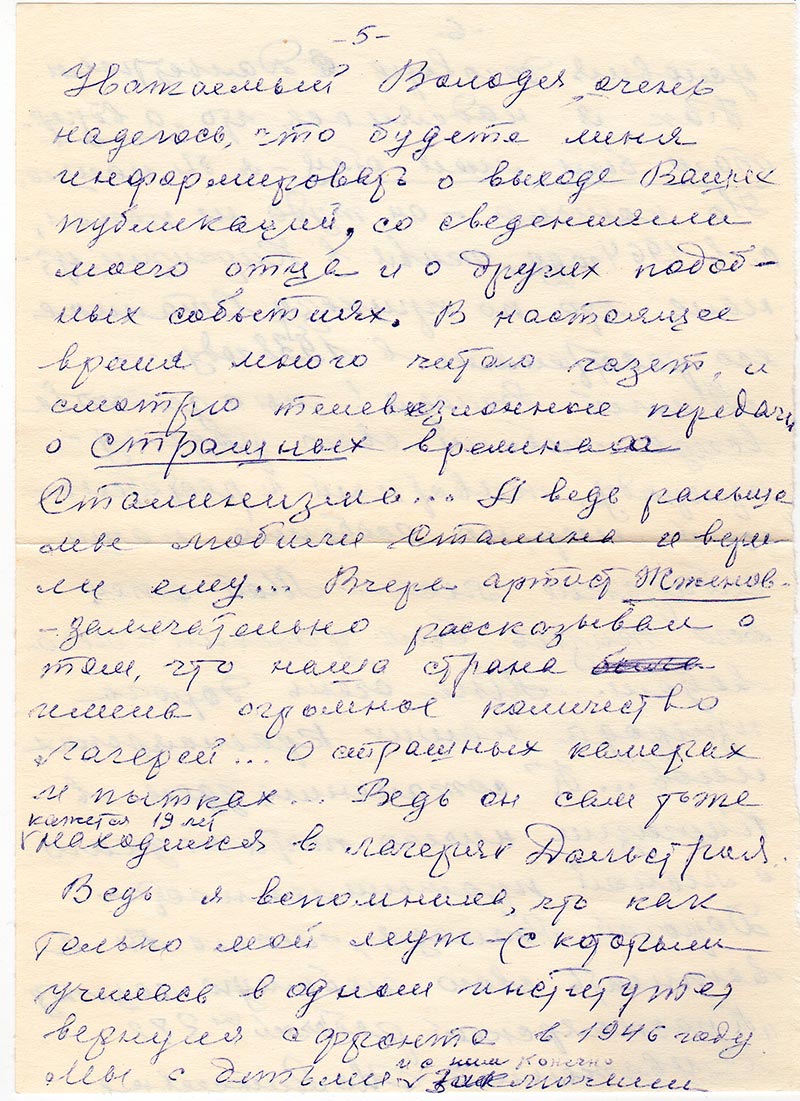 -5-
Уважаемый Володя, очень
надеюсь, что будете меня
информировать о выходе Ваших
публикаций, со сведениями
моего отца и о других подоб-
ных событиях. В настоящее
время много читаю газет, и
смотрю телевизионные передачи
о страшных временах
Сталинизма... А ведь раньше
мы любили Сталина и вери-
ли ему... Вчера артист Жженов-
-замечательно рассказывал о
том, что наша страна
имела огромное количество
лагерей... О страшных камерах
и пытках... Ведь он сам тоже
кажется 19 лет
находился в лагерях Дальстроя.
Ведь я вспомнила, что как
только мой муж-(с которым
училась в одном институте)
вернулся с фронта в 1946 году
и с ним конечно
мы с детьми заключили